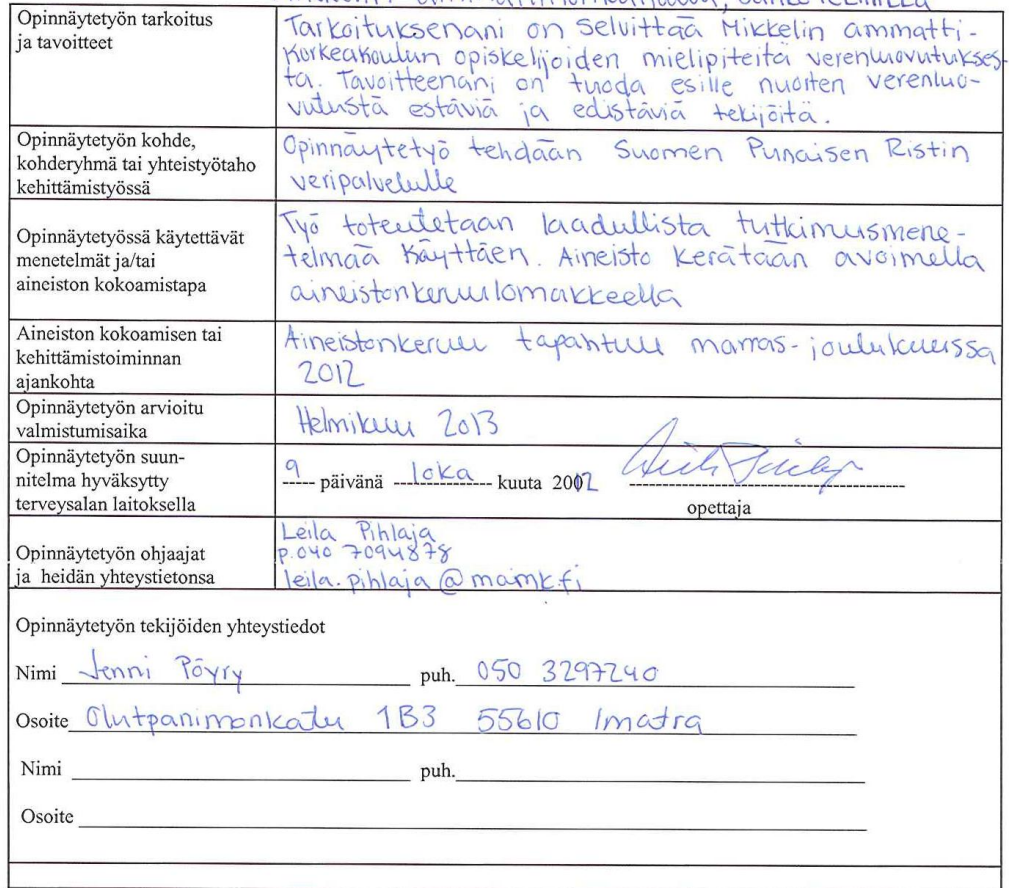 Opinnäytetyön tarkoitus
ja tavoitteet
Tarkoituksenani on selvittää Mikkelin ammatti-
korkeakoulun opiskelijoiden mielipiteitä verenluovutukses-
ta. Tavoitteenani on tuoda esille nuorten verenluo-
vutusta estäviä ja edistäviä tekijöitä.
Opinnäytetyön kohde,
kohderyhmä tai yhteistyötaho
kehittämistyössä
Opinnäytetyö tehdään Suomen Punaisen Ristin
veripalvelulle
Opinnäytetyössä käytettävät
menetelmät ja/tai
aineiston kokoamistapa
Työ toteutetaan laadullista tutkimusmene-
telmää käyttäen. Aineisto kerätään avoimella
aineistonkeruulomakkeella
Aineiston kokoamisen tai
kehittämistoiminnan
ajankohta
Aineistonkeruu tapahtuu marras-joulukuussa
2012
Opinnäytetyön arvioitu
valmistumisaika
Helmikuu 2013
Opinnäytetyön suun-
nitelma hyväksytty
terveysalan laitoksella
9 päivänä loka kuuta 2012
opettaja
Opinnäytetyön ohjaajat
ja heidän yhteystietonsa
Leila Pihlaja
p.040 7094878
leila.pihlaja@mamk.fi
Opinnäytetyön tekijöiden yhteystiedot
Nimi Jenni Pöyry puh. 050 3297240
Osoite Olutpanimonkatu 1B3 55610 Imatra
Nimi puh.
Osoite